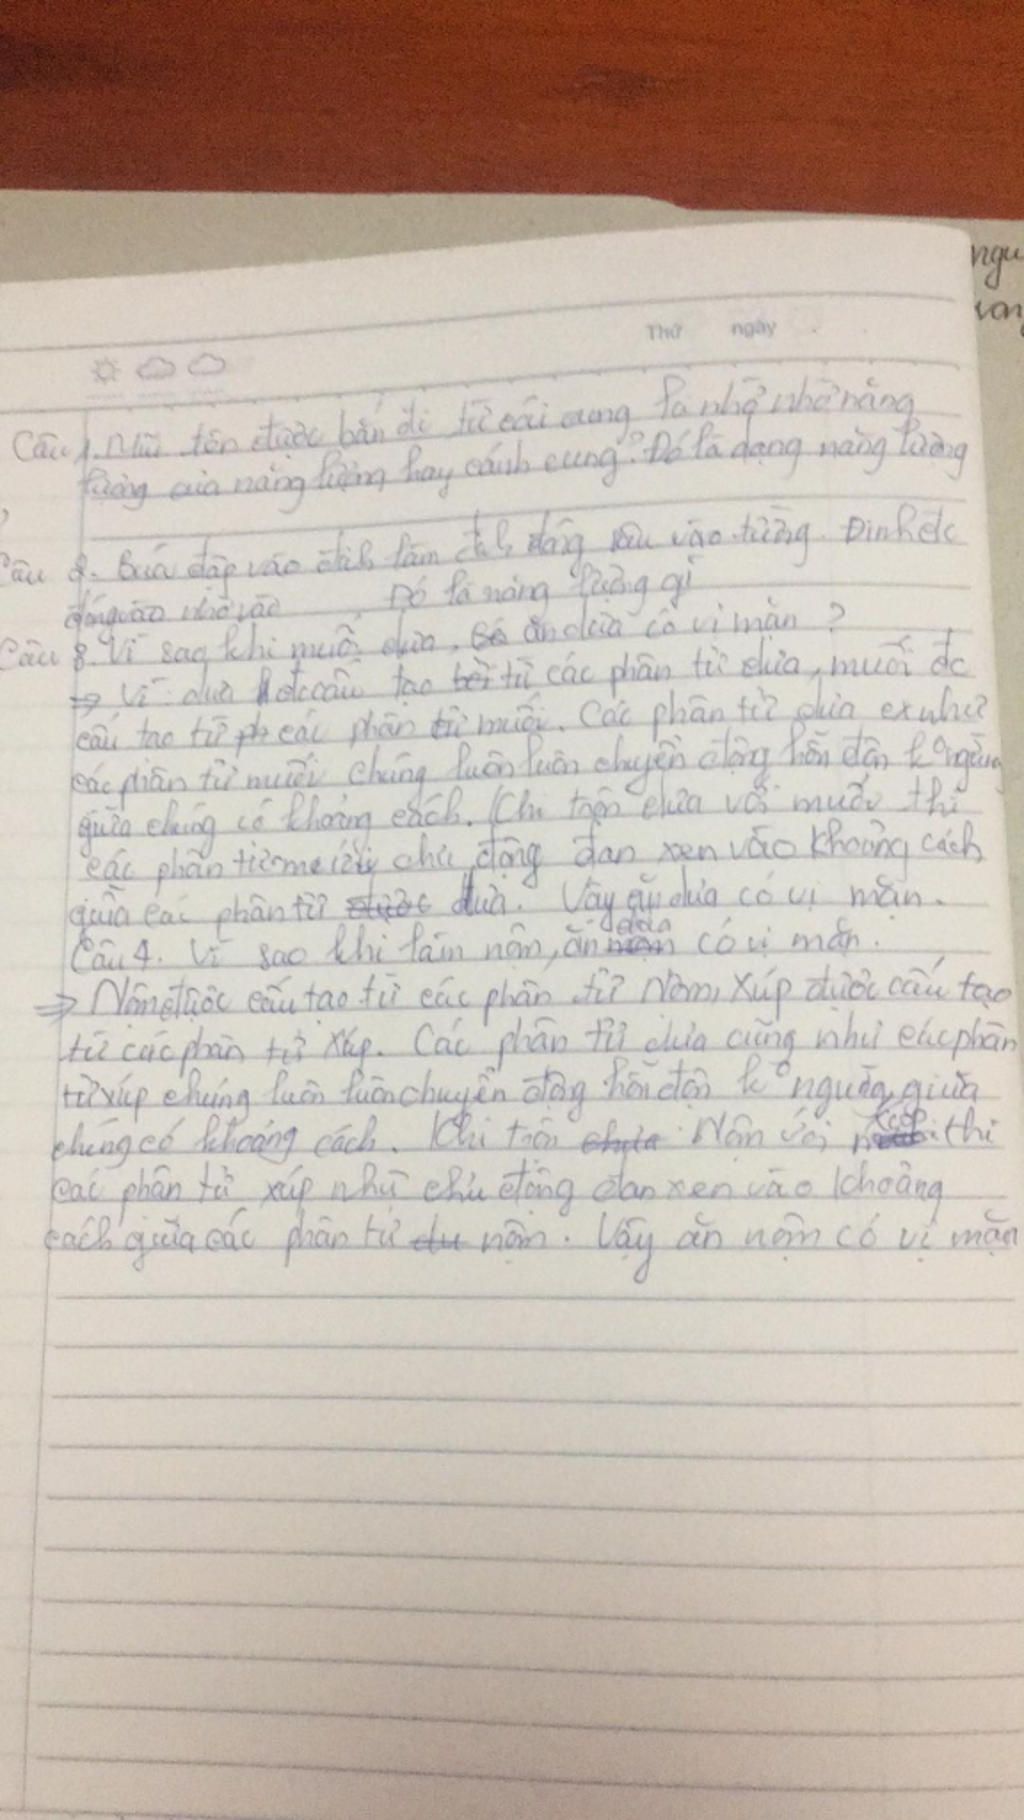 ngu
Thứ ngày
Câu 1. Mũi tên được bắn đi từ cái cung là nhờ nhờ năng
lượng của năng lượng hay cánh cung? Đó là dạng năng lượng
Câu 2. Búa đập vào đinh làm đinh đóng sâu vào tường. Đinh đc
đóng vào nhờ vào Đó là năng lượng gì
Câu 3. Vì sao khi muối dưa, ăn dưa có vị mặn ?
=> Vì dưa đc cấu tạo từ các phân tử dưa, muối đc
cấu tạo từ các phân tử muối. Các phân tử dưa như
các phân tử muối chúng luôn luôn chuyển động hỗn độn k° ngừng
giữa chúng có khoảng cách. Khi trộn dưa với muối thì
các phân tử động đan xen vào khoảng cách
giữa các phân tử dưa. Vậy ăn dưa có vị mặn.
Câu 4. Vì sao khi làm nộm, ăn có vị mặn.
=> Nộm được cấu tạo từ các phân tử Nộm, xúp được cấu tạo
từ các phân tử xúp. Các phân tử dưa cũng như các phân
tử xúp chúng luôn luôn chuyển động hỗn độn k° ngừng, giữa
chúng có khoảng cách. Khi trộn Nộm với thì
các phân tử xúp như chu động đan xen vào khoảng
cách giữa các phân tử nộm. Vậy ăn nộm có vị mặn